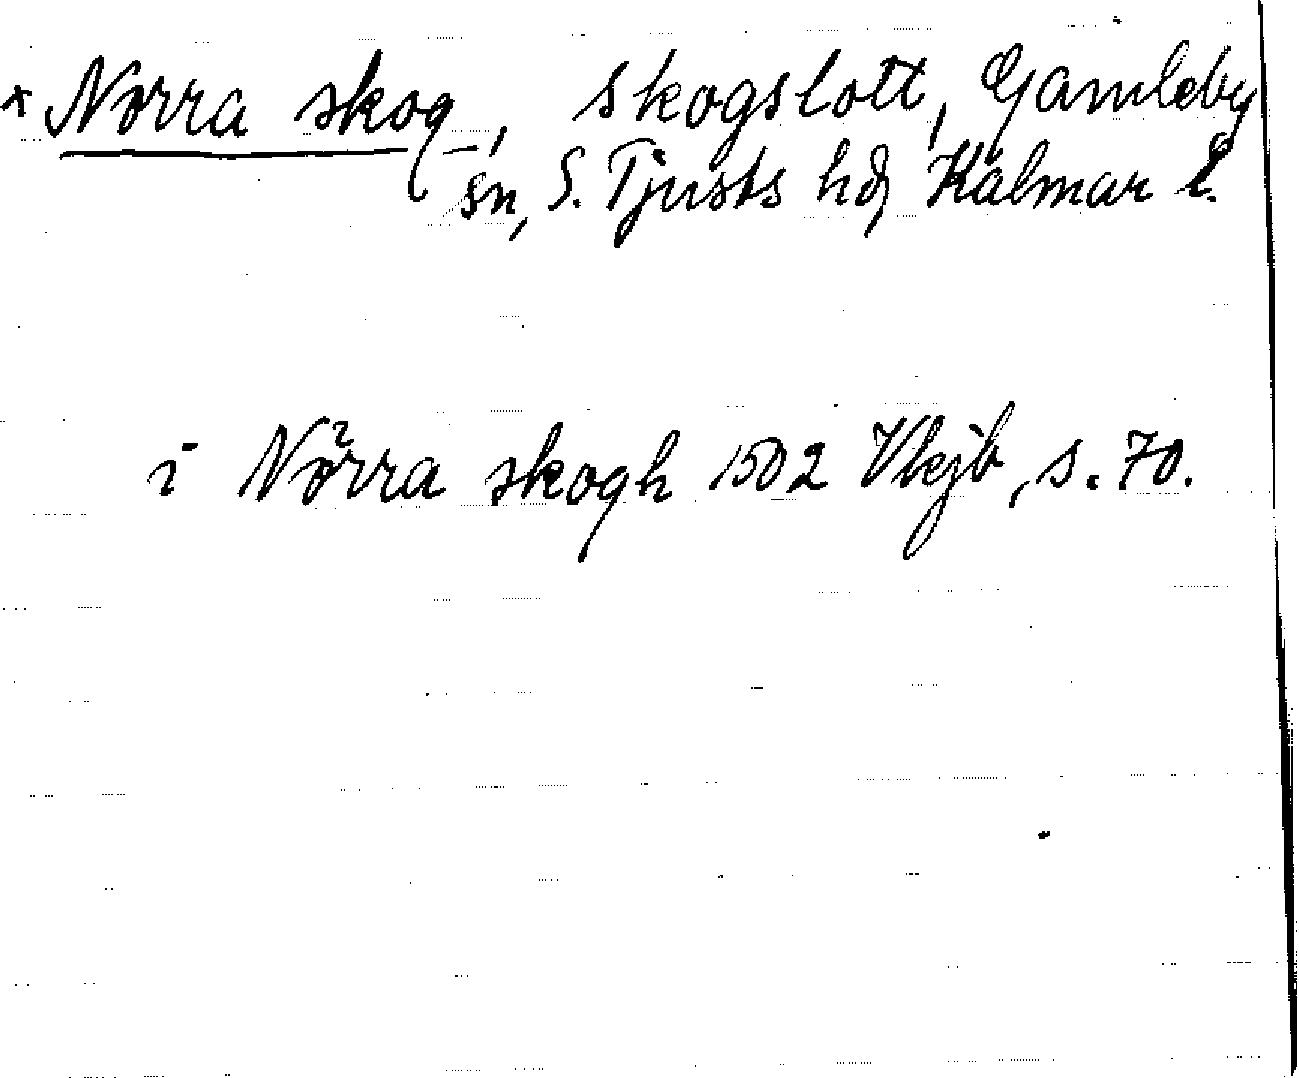 × Norra skog, skogslott, Gamleby
sn, S. Tjusts hd, Kalmar l.
i Nörra skogh 1502 Vkjb, s. 70.